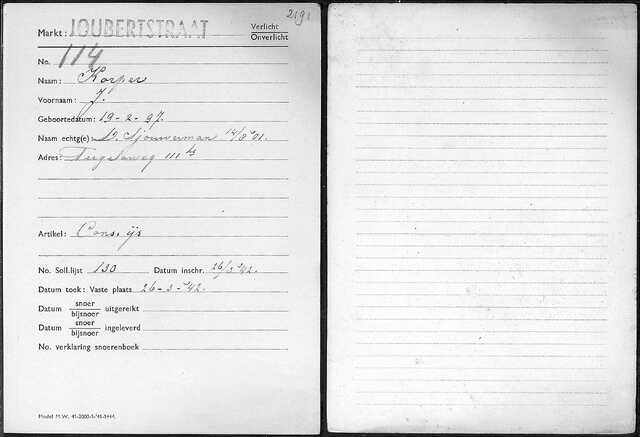 2191
Markt: JOUBERTSTRAAT Verlicht
Onverlicht
No. 114
Naam: Korper
Voornaam: J.
Geboortedatum: 19-2-97.
Naam echtg(e): D. Sjouwerman 14/8 '01.
Adres: Tugelaweg 111 hs
Artikel: Cons. ijs
No. Soll.lijst 130 Datum inschr. 26/3 '42.
Datum toek: Vaste plaats 26-3-'42.
Datum snoer
bijsnoer uitgereikt
Datum snoer
bijsnoer ingeleverd
No. verklaring snoerenboek
Model M.W. 41-2000-1-'41-1444.